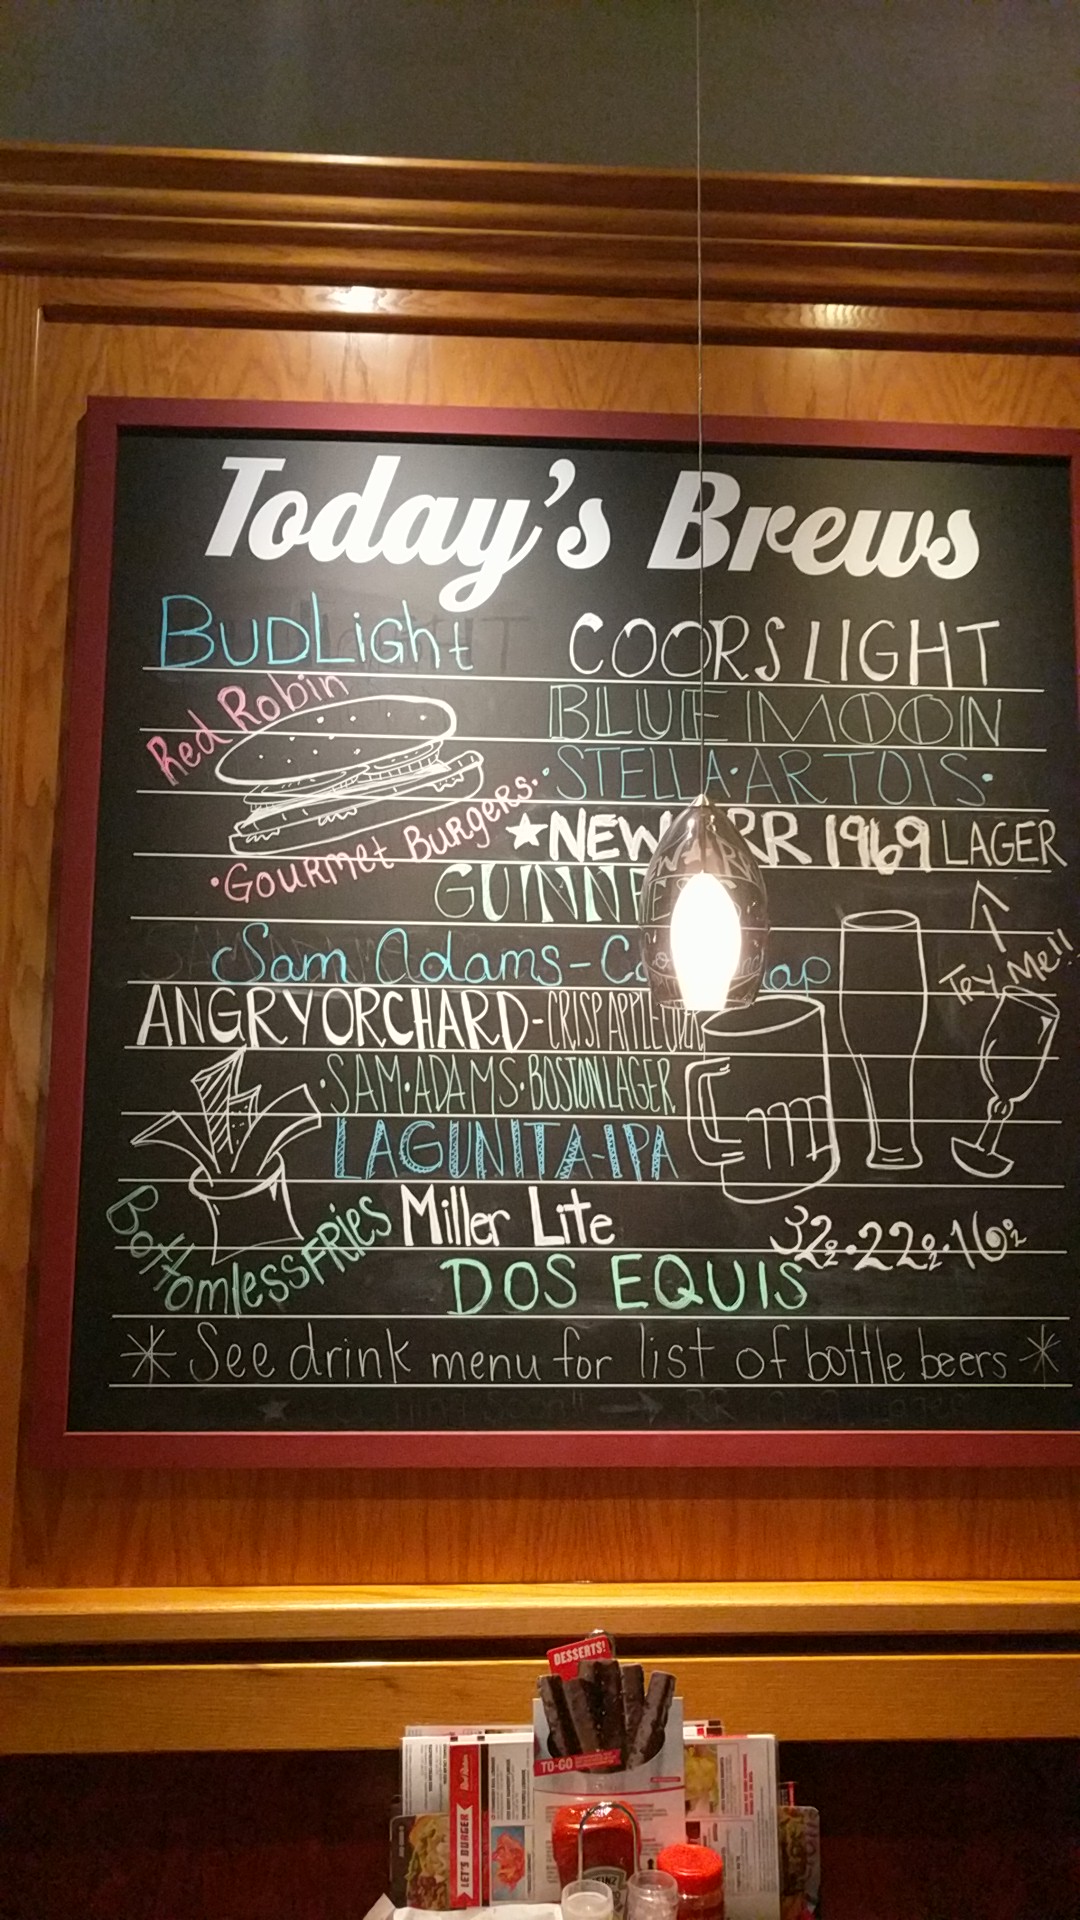 Today's Brews
BudLight COORS LIGHT
Red Robin
BLUE MOON
·STELLA·ARTOIS·
Gourmet Burgers.
★NEW RR 1969 LAGER
Sam Adams-
Try Me!!
ANGRY ORCHARD-CRISP APPLE CIDER
·SAM·ADAMS·BOSTON LAGER
LAGUNITA-IPA
Bottomless FRies
Miller Lite
32oz·22oz·16oz
DOS EQUIS
* See drink menu for list of bottle beers *
DESSERTS!
TO-GO
LET'S BURGER
Red Robin
HEINZ